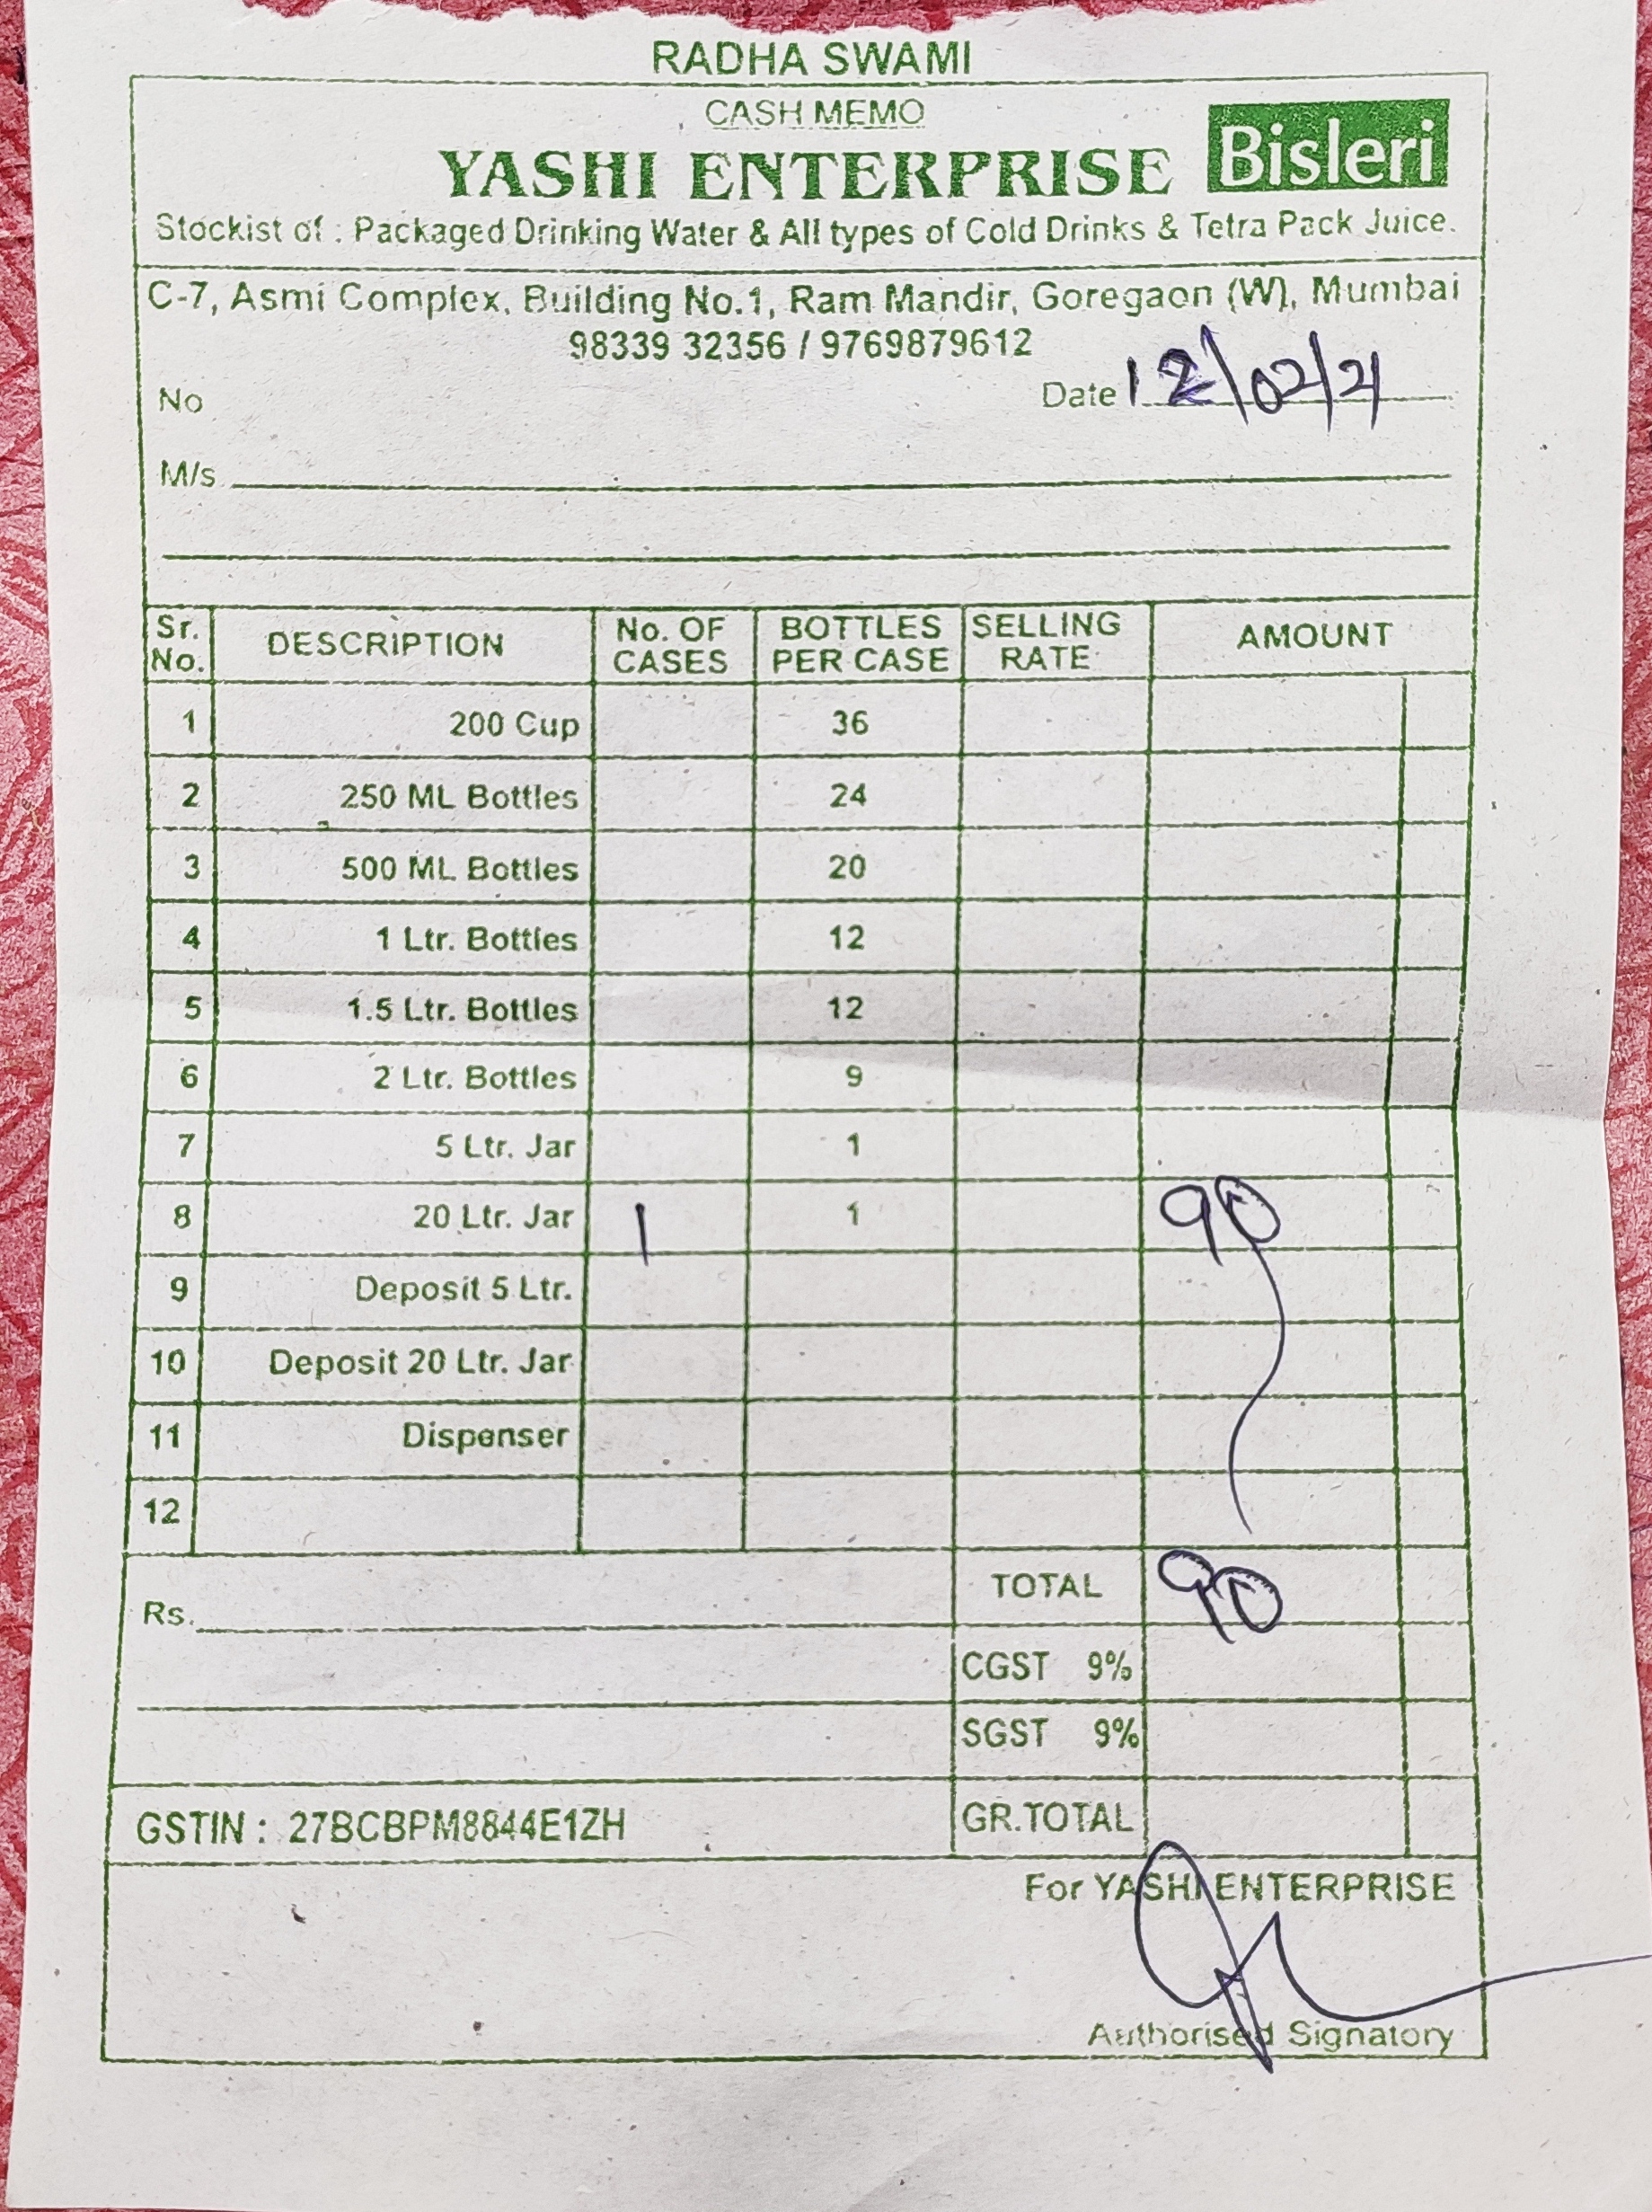 RADHA SWAMI
CASH MEMO
YASHI ENTERPRISE Bisleri
Stockist of : Packaged Drinking Water & All types of Cold Drinks & Tetra Pack Juice.
C-7, Asmi Complex, Building No.1, Ram Mandir, Goregaon (W), Mumbai
98339 32356 / 9769879612
No Date 12/02/21
M/s
Sr. No. DESCRIPTION No. OF CASES BOTTLES PER CASE SELLING RATE AMOUNT
1 200 Cup 36
2 250 ML Bottles 24
3 500 ML Bottles 20
4 1 Ltr. Bottles 12
5 1.5 Ltr. Bottles 12
6 2 Ltr. Bottles 9
7 5 Ltr. Jar 1
8 20 Ltr. Jar 1 1 90
9 Deposit 5 Ltr.
10 Deposit 20 Ltr. Jar
11 Dispenser
12
Rs. TOTAL 90
CGST 9%
SGST 9%
GSTIN : 27BCBPM8844E1ZH GR.TOTAL
For YASHI ENTERPRISE
Authorised Signatory